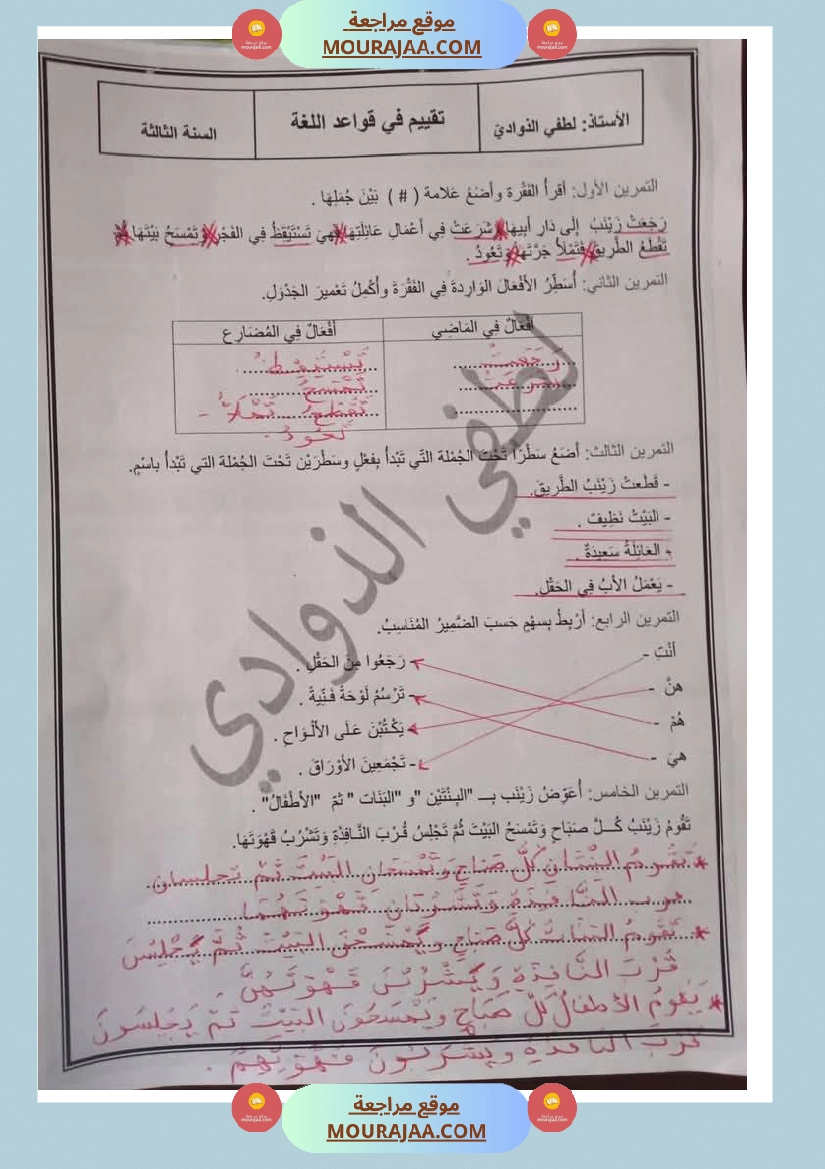 موقع مراجعة
MOURAJAA.COM
الأستاذ: لطفي الذواديّ
تقييم في قواعد اللغة
السنة الثالثة
التمرين الأول: أقرأُ الفَقْرة وأضَعُ عَلامة ( # ) بَيْنَ جُمَلِهَا .
رَجَعَتْ زَيْنَبُ إلى دَارِ أبِيهَا # شَرَعَتْ فِي أعْمَالِ عَائِلَتِهَا # فَهِيَ تَسْتَيْقِظُ فِي الفَجْرِ # وَتَمْسَحُ بَيْتَهَا #
تَقْطَعُ الطَّرِيقَ # فَتَمْلَأُ جَرَّتَهَا # وَتَعُودُ .
التمرين الثاني: أُسَطِّرُ الأفْعَالَ الوَارِدةَ فِي الفَقْرَة وأُكْمِلُ تَعْمِيرَ الجَدْوَلِ.
أفْعَالٌ فِي المَاضِي
أفْعَالٌ فِي المُضَارِع
رَجَعَتْ
تَسْتَيْقِظُ
شرعَتْ
تَمْسَحُ
تَقْطَعُ - تَمْلَأُ -
تَعُودُ -
التمرين الثالث: أضَعُ سَطْرًا تَحْتَ الجُمْلة التّي تَبْدأ بِفعْلٍ وسَطْرَيْن تَحْتَ الجُمْلة التي تَبْدأ باسْمٍ.
- قَطَعتْ زَيْنَبُ الطَّرِيقَ.
- البَيْتُ نَظِيفٌ .
- العَائِلَةُ سَعِيدَةٌ .
- يَعْمَلُ الأبُ فِي الحَقْلِ.
التمرين الرابع: أرْبِطُ بِسهْمٍ حَسبَ الضَّمِيرُ المُنَاسِبُ.
أنْتِ -
- رَجَعُوا مِنَ الحَقْلِ .
هنَّ -
- تَرْسُمُ لَوْحَةً فَنّيةً .
هُمْ -
- يَكْتُبْنَ عَلَى الألْوَاحِ .
هيَ -
- تَجْمَعِينَ الأوْرَاقَ .
التمرين الخامس: أُعَوِّضُ زَيْنَب بِـ "البِنْتَيْنِ "و "البَنَات " ثمّ "الأطْفَالُ" .
تَقُومُ زَيْنَبُ كُــلَّ صَبَاحٍ وَتَمْسَحُ البَيْتَ ثُمَّ تَجْلِسُ قُرْبَ النَّافِذَةِ وَتَشْرُبُ قَهْوَتَهَا.
* تَقُومُ البنْتَانِ كلَّ صَبَاحٍ وَتَمْسَحَانِ البَيْتَ ثمّ تجلسان
قرب النَّافِذَةِ وَتَشْرَبَانِ قَهْوَتَهُمَا
* تَقُومُ البَنَاتُ كلَّ صَبَاحٍ ويَمْسَحْنَ البَيْتَ ثُمَّ يَجْلِسْنَ
قُرْبَ النَّافِذَةِ وَيَشْرَبْنَ قَهْوَتَهُنَّ
* يَقُومُ الأطفالُ كلّ صَبَاحٍ ويَمْسَحُونَ البَيْتَ ثمّ يَجْلِسُونَ
قُرْبَ النافذةِ ويَشْرَبُونَ قَهْوَتَهُمْ .
لطفي الذوادي
موقع مراجعة
MOURAJAA.COM